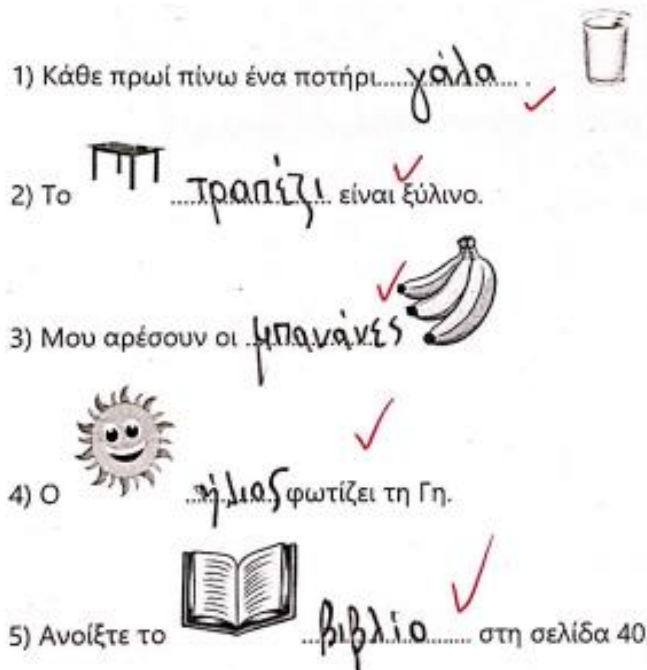 1) Κάθε πρωί πίνω ένα ποτήρι......γάλα...... .
2) Το ......τραπέζι...... είναι ξύλινο.
3) Μου αρέσουν οι ..μπανάνες
4) Ο ....ήλιος φωτίζει τη Γη.
5) Ανοίξτε το ....βιβλίο....... στη σελίδα 40